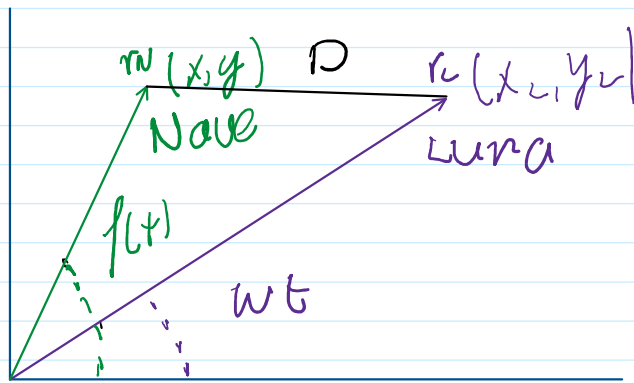 rN (x,y) D rL (xL, yL)
Nave Luna
f(t)
wt